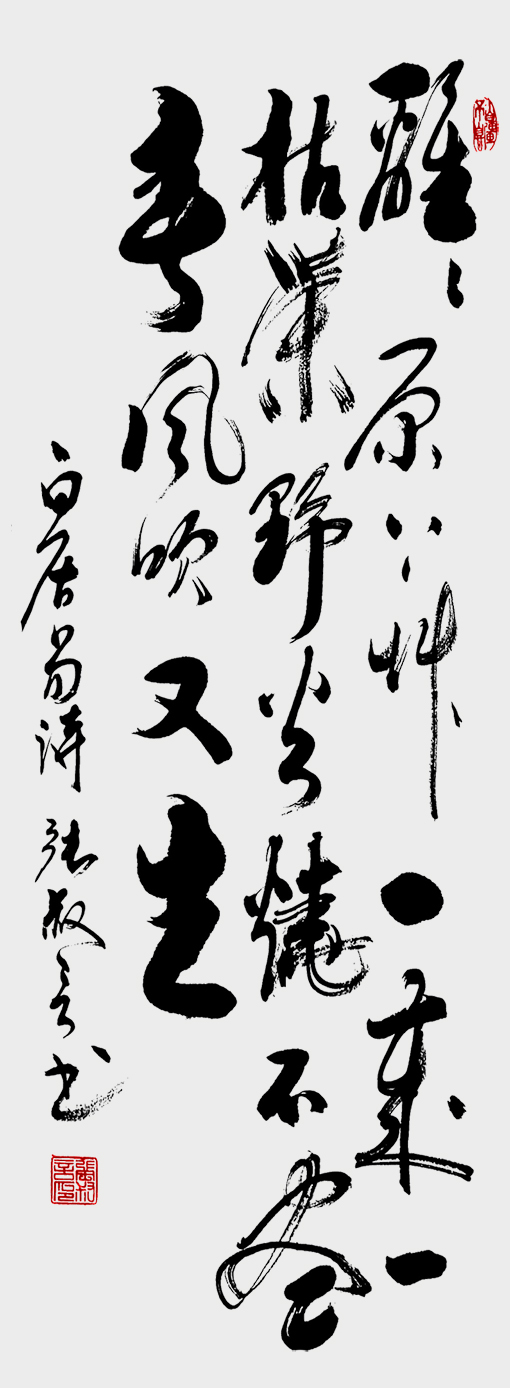 離〻原上艸一歲一
枯榮野火燒不盡
春風吹又生
白居易詩 張叔言书